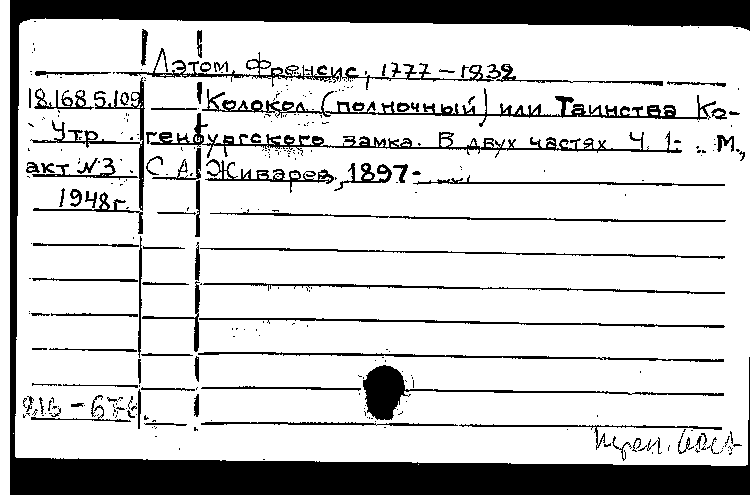 Лэтом, Френсис, 1777-1832
18.168.5.109 Колокол (полночный) или Таинства Ко-
Утр. генбургского замка. В двух частях Ч. 1- . М.,
акт №3 С.А. Живарев, 1897-
1948г.
216-676